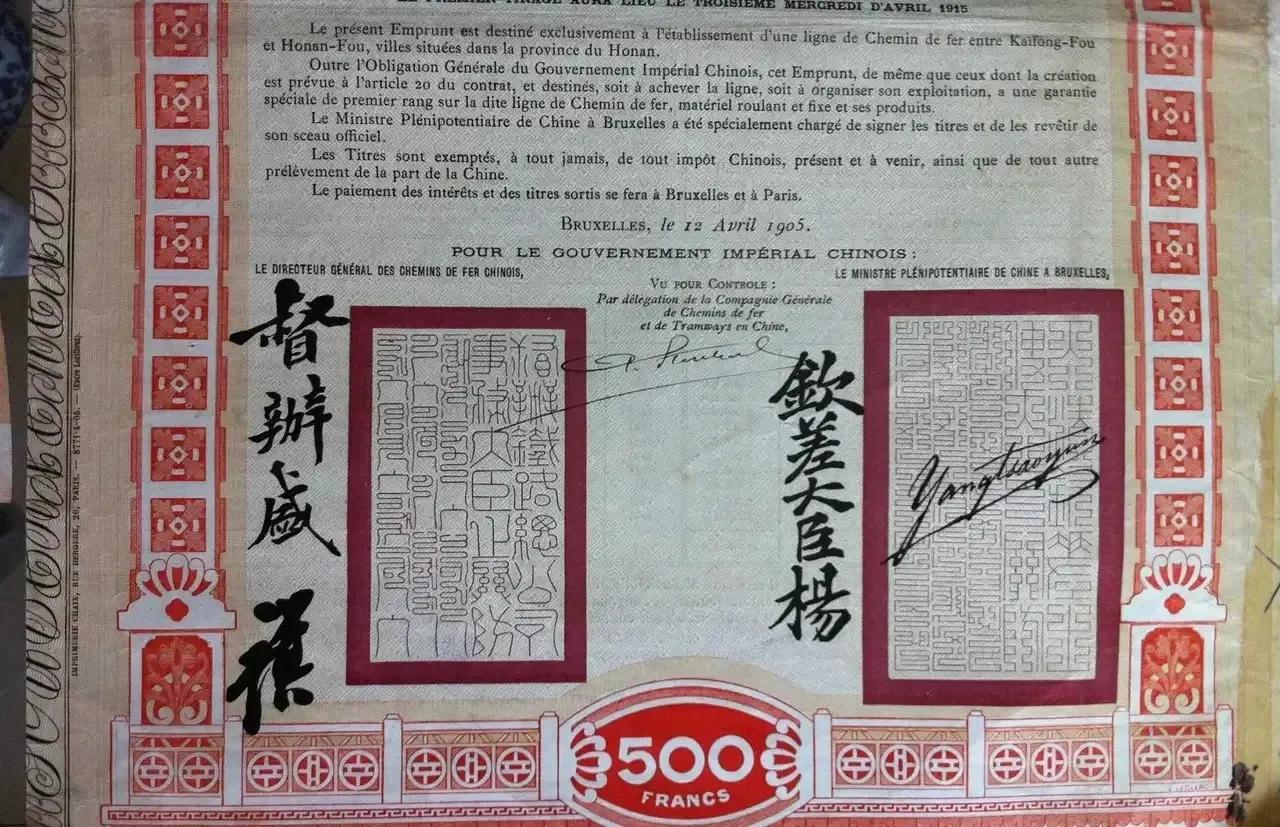 LE PREMIER TIRAGE AURA LIEU LE TROISIÈME MERCREDI D'AVRIL 1915
Le présent Emprunt est destiné exclusivement à l'établissement d'une ligne de Chemin de fer entre Kaifong-Fou
et Honan-Fou, villes situées dans la province du Honan.
Outre l'Obligation Générale du Gouvernement Impérial Chinois, cet Emprunt, de même que ceux dont la création
est prévue à l'article 20 du contrat, et destinés, soit à achever la ligne, soit à organiser son exploitation, a une garantie
spéciale de premier rang sur la dite ligne de Chemin de fer, matériel roulant et fixe et ses produits.
Le Ministre Plénipotentiaire de Chine à Bruxelles a été spécialement chargé de signer les titres et de les revêtir de
son sceau officiel.
Les Titres sont exemptés, à tout jamais, de tout impôt Chinois, présent et à venir, ainsi que de tout autre
prélèvement de la part de la Chine.
Le paiement des intérêts et des titres sortis se fera à Bruxelles et à Paris.
BRUXELLES, le 12 Avril 1905.
POUR LE GOUVERNEMENT IMPÉRIAL CHINOIS :
LE DIRECTEUR GÉNÉRAL DES CHEMINS DE FER CHINOIS,
LE MINISTRE PLÉNIPOTENTIAIRE DE CHINE A BRUXELLES,
VU POUR CONTROLE :
Par délégation de la Compagnie Générale
de Chemins de fer
et de Tramways en Chine,
督辦盛
欽差大臣楊
Yangtsaoyun
500
FRANCS
IMPRIMERIE CHAIX, RUE BERGÈRE, 20, PARIS. — 8771-4-05. — (Encre Lorilleux).